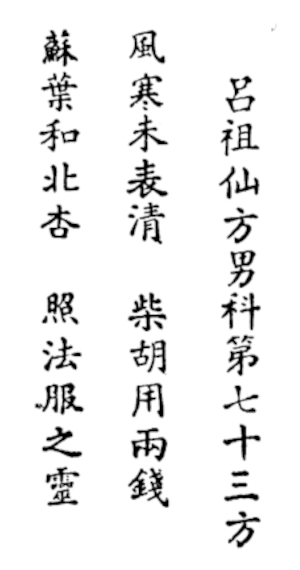 呂祖仙方男科第七十三方
風寒未表清　柴胡用兩錢
蘇葉和北杏　照法服之靈